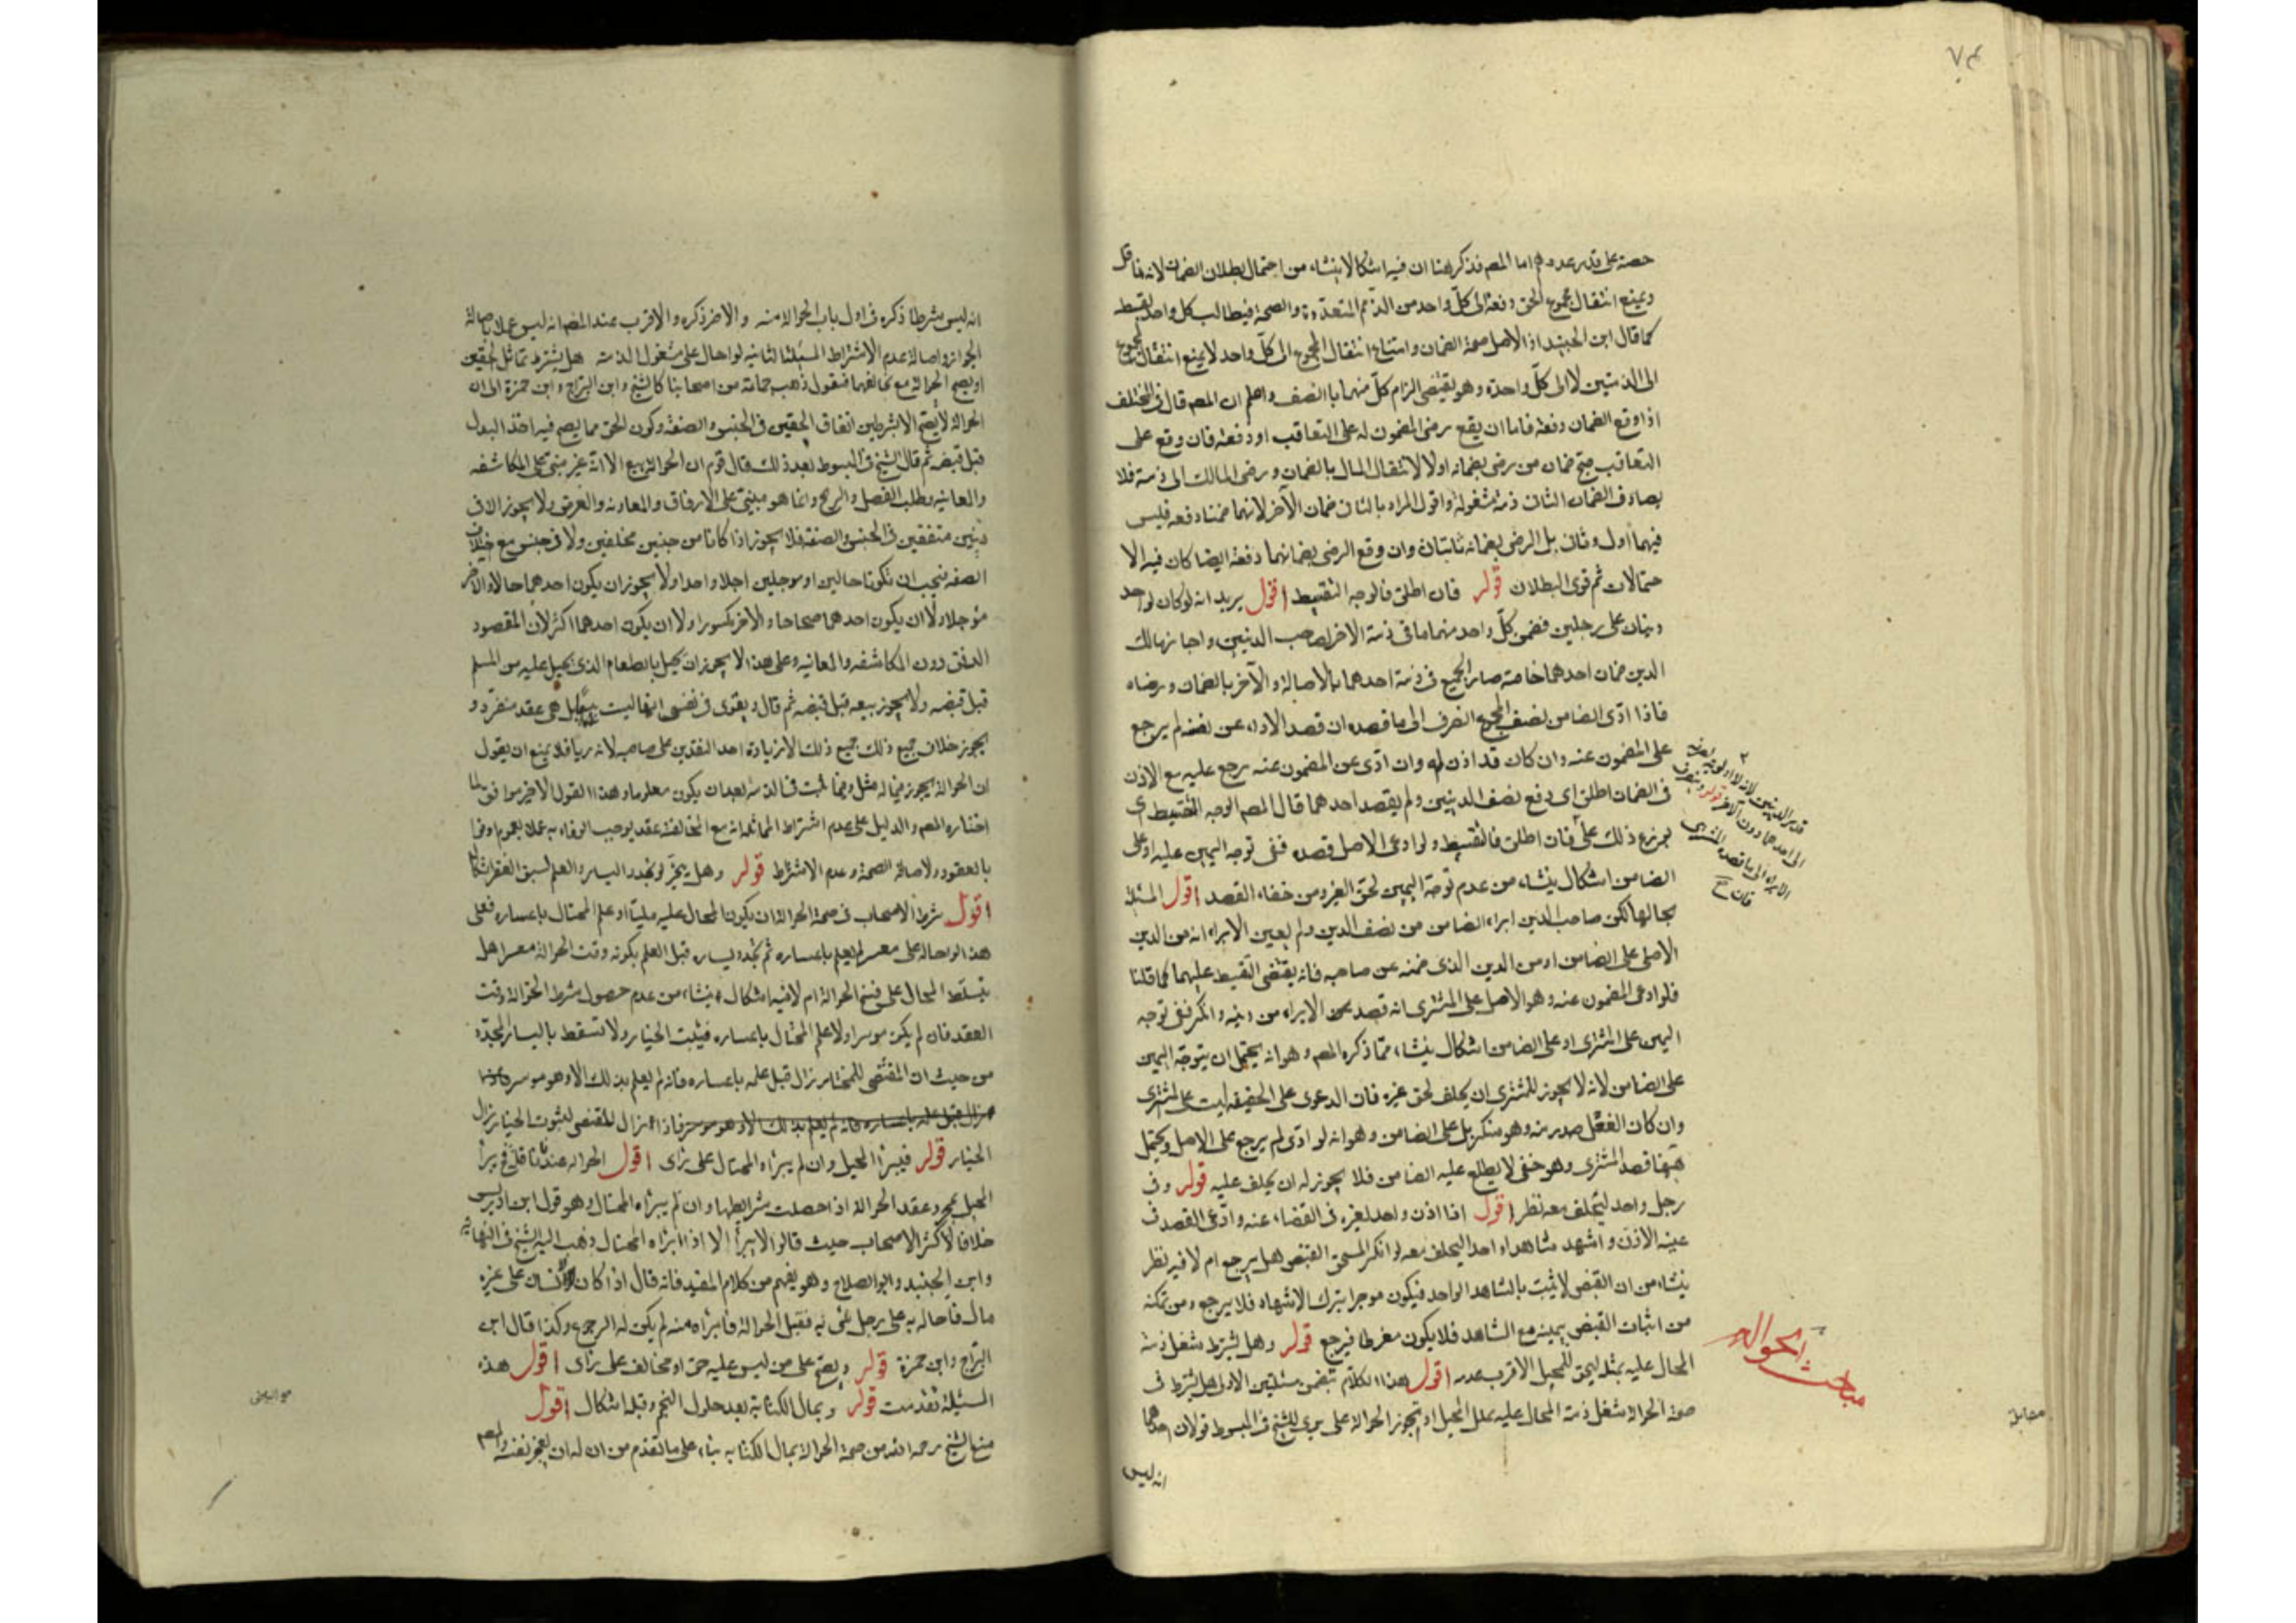 ٧٤
حصته على قدر عددهم اما المصم فذكر هنا ان فيه اشكالا ينشاء من احتمال بطلان الضمان لانه ناقل
ويمنع انتقال مجموع الحق دفعة الى كلّ واحد من الذمم المتعدّدة والصحة فيطالب كل واحد بقسط
كما قال ابن الجنيد اذ الاصل صحة الضمان وامتناع انتقال المجموع الى كلّ واحد لا يمنع انتقال المجموع
الى الذمتين لا الى كلّ واحدة وهو يقتضى الزام كلّ منهما بالنصف واعلم ان المصم قال فى المختلف
اذا وقع الضمان دفعة فاما ان يقع رضى المضمون له على التعاقب او دفعة فان وقع على
التعاقب صح ضمان من رضى بضمانه اولا لانتقال المال بالضمان ورضى المالك الى ذمته فلا
يصادف الضمان الثانى ذمة مشغولة واقول المراد بالثانى ضمان الآخر لانهما ضمنا دفعة فليس
فيهما اول وثان بل الرضى بضمانه ثابتان وان وقع الرضى بضمانهما دفعة ايضا كان فيه الا
حتمالات ثم قوى البطلان قوله فان اطلق فالوجه التقسيط اقول يريد انه لو كان لواحد
دينان على رجلين فضمن كلّ واحد منهما ما فى ذمة الاخر لصاحب الدينين واجاز مالك
الدين ضمان احدهما خاصة صار الجميع فى ذمة احدهما بالاصالة والآخر بالضمان ورضاه
فاذا ادّى الضامن نصف المجموع انصرف الى ما قصده ان قصد الاداء عن نفسه لم يرجع
على المضمون عنه وان كان قد اذن له وان ادّى عن المضمون عنه يرجع عليه مع الاذن
فى الضمان اطلق اى دفع نصف الدينين ولم يقصد احدهما قال المصم الوجه التقسيط اى
يوزع ذلك على فان اطلق فالتقسيط ولو ادعى الاصل قصده ففى توجه اليمين عليه او على
الضامن اشكال ينشاء من عدم توجّه اليمين لحق الغير ومن خفاء القصد اقول المسئلة
بحالها لكن صاحب الدين ابراء الضامن من نصف الدين ولم يعين الابراء انه من الدين
الاصلى على الضامن او من الدين الذى ضمنه عن صاحبه فانه يقتضى التقسيط عليهما كما قلنا
فلو ادعى المضمون عنه وهو الاصل على المشترى انه قصد الابراء من دينه وانكر ففى توجه
اليمين على المشترى او على الضامن اشكال ينشاء ممّا ذكره المصم وهو انه يحتمل ان يتوجّه اليمين
على الضامن لانه لا يجوز للمشترى ان يحلف لحق غيره فان الدعوى على الحقيقة ليست على المشترى
وان كان الفعل صدر منه وهو منكر بل على الضامن وهو انه لو ادّى لم يرجع على الاصل ويحتمل
ههنا قصد المشترى وهو خفى لا يطلع عليه الضامن فلا يجوز له ان يحلف عليه قوله وفى
رجل واحد ليحلف معه نظر اقول اذا اذن واحد لغيره فى القضاء عنه وادّعى القصد فى
عينه الاذن واشهد شاهدا واحدا ليحلف معه لو انكر المستحق القبض هل يرجع ام لا فيه نظر
ينشاء من ان القبض لا يثبت بالشاهد الواحد فيكون موجرا بترك الاشهاد فلا يرجع ومن تمكنه
من اثبات القبض بيمينه مع الشاهد فلا يكون مفرطا فيرجع قوله وهل يشترط شغل ذمة
المحال عليه بمثله لحق للمحيل الاقرب عدمه اقول هذا الكلام تتضمن مسئلتين الاولى هل يشترط فى
صحة الحوالة شغل ذمة المحال عليه بمثل المحيل او تجوز الحوالة على برى للشيخ فى المبسوط قولان احدهما
انه ليس
قدر الدينين لانه لا اولوية بصرفه
الى احدهما دون الآخر قوله وينصرف
الابراء الى ما قصده المشترى
فان صح
مباحث الحوالة
مقابلة
انه ليس بشرط ذكره فى اول باب الحوالة منه والاخر ذكره والاقرب عند المصم انه ليس عملا باصالة
الجواز واصالة عدم الاشتراط المسئلة الثانية لو احال على مشغول الذمة هل يشترط تماثل الحقين
او يصح الحوالة مع تخالفهما فنقول ذهب جماعة من اصحابنا كالشيخ وابن البراج وابن حمزة الى ان
الحوالة لا يصح الا بشرطين اتفاق الحقين فى الجنس والصفة وكون الحق مما يصح فيه اخذ البدل
قبل قبضه ثم قال الشيخ فى المبسوط بعد ذلك قال قوم ان الحوالة بيع الا انّه غير مبنى على المكاشفة
والمعاينة وطلب الفضل والربح وانما هو مبنىّ على الارفاق والمعاونة والقرض ولا يجوز الا فى
دينين متفقين فى الجنس والصفة فلا يجوز اذا كانا من جنسين مختلفين ولا فى جنس مع خلاف
الصفة فيجب ان تكونا حالين او موجلين اجلا واحدا ولا يجوز ان يكون احدهما حالا والاخر
مؤجلا ولا ان يكون احدهما صحاحا والاخر مكسورا ولا ان يكون احدهما اكثر لان المقصود
الرفق دون المكاشفة والمعاينة وعلى هذا لا يجوز ان يحيل بالطعام الذى يحيل عليه من السلم
قبل قبضه ولا يجوز بيعه قبل قبضه ثم قال ويقوى فى نفسى انها ليست ببيع بل هى عقد منفرد و
يجوز خلاف جميع ذلك جميع ذلك الا زيادة احد النقدين على صاحبه لانه ربا فلا يمنع ان يقول
ان الحوالة يجوز فيما له مثل وفيما ثبت فى الذمة بعد ان يكون معلوما وهذا القول الاخير موافق لما
اختاره المصم والدليل على عدم اشتراط المماثلة انه مع المخالفة عقد يوجب الوفاء به عملا بعموم اوفوا
بالعقود ولاصالة الصحة وعدم الاشتراط قوله وهل يتخيّر لو تجدد اليسار والعلم لسبق الفقر اشكال
اقول شرط الاصحاب فى صحة الحوالة ان يكون المحال عليه مليّا او علم المحتال باعساره فعلى
هذا لو احاله على معسر لم يعلم باعساره ثم تجدّد يساره قبل العلم بكونه وقت الحوالة معسرا هل
يتسلّط المحال على فسخ الحوالة ام لا فيه اشكال ينشاء من عدم حصول شرط الحوالة وقت
العقد فان لم يكن موسرا ولا علم المحتال باعساره فيثبت الخيار ولا تسقط باليسار المتجدّد
من حيث ان المقتضى للخيار زال قبل علمه باعساره فانه لم يعلم بذلك الا وهو موسر
زال قبل علمه باعساره فانه لم يعلم بذلك الا وهو موسر فاذا زال المقتضى لثبوت الخيار زال
الخيار قوله فيبرأ المحيل وان لم يبرأه المحتال على رأى اقول الحوالة عندنا ناقلة فيبرأ
المحيل بمجرد عقد الحوالة اذا حصلت شرايطها وان لم يبرأه المحتال وهو قول ابن ادريس
خلافا لاكثر الاصحاب حيث قالوا لا يبرأ الا اذا ابرأه المحتال وذهب اليه الشيخ فى النهاية
وابن الجنيد وابو الصلاح وهو يفهم من كلام المفيد فانه قال اذا كان لانسان على غيره
مال فاحاله به على رجل ملى به فقبل الحوالة فابرأه منه لم يكن له الرجوع وكذا قال ابن
البراج وابن حمزة قوله ويصح على من ليس عليه حق او مخالف على رأى اقول هذه
المسئلة تقدمت قوله وبمال الكتابة بعد حلول النجم وقبله اشكال اقول
منع الشيخ رحمه الله من صحة الحوالة بمال الكتابة بناء على ما تقدم من ان له ان يعجز نفسه والمصم